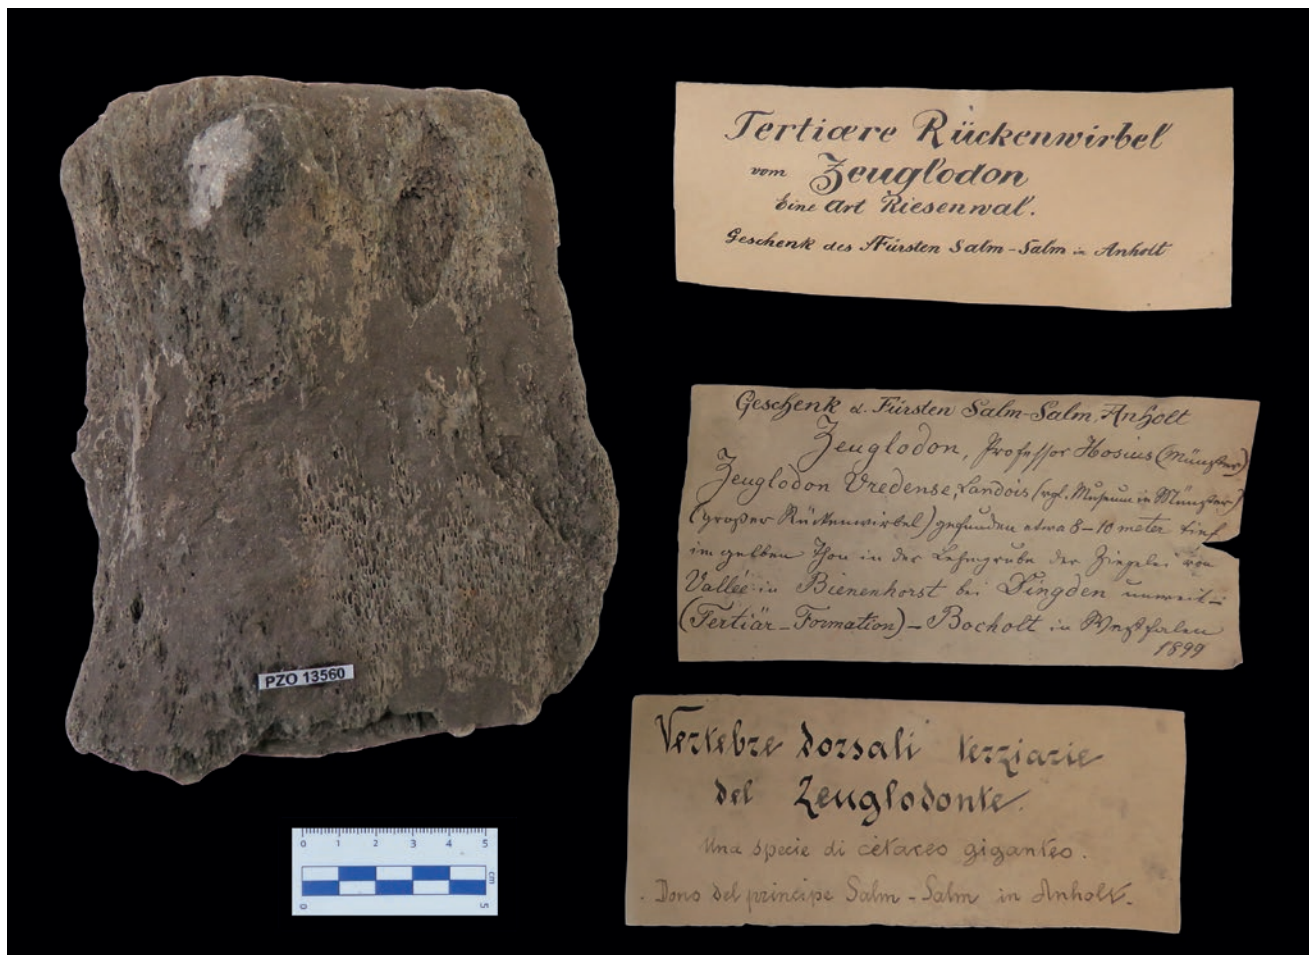 PZO 13560
0 1 2 3 4 5
cm
0 5
Tertiære Rückenwirbel
vom Zeuglodon
Eine Art Riesenwal.
Geschenk des Fürsten Salm-Salm in Anholt
Geschenk d. Fürsten Salm-Salm, Anholt
Zeuglodon, Professor Hosius (Münster)
Zeuglodon Vredense, Landois (vgl. Museum in Münster)
(großer Rückenwirbel) gefunden etwa 8-10 meter tief
im gelben Thon in der Lehmgrube der Ziegelei von
Vallée in Bienenhorst bei Dingden unweit
(Tertiär-Formation) - Bocholt in Westfalen
1899
Vertebre dorsali terziarie
del Zeuglodonte.
Una specie di cetaceo giganteo.
Dono del principe Salm-Salm in Anholt.